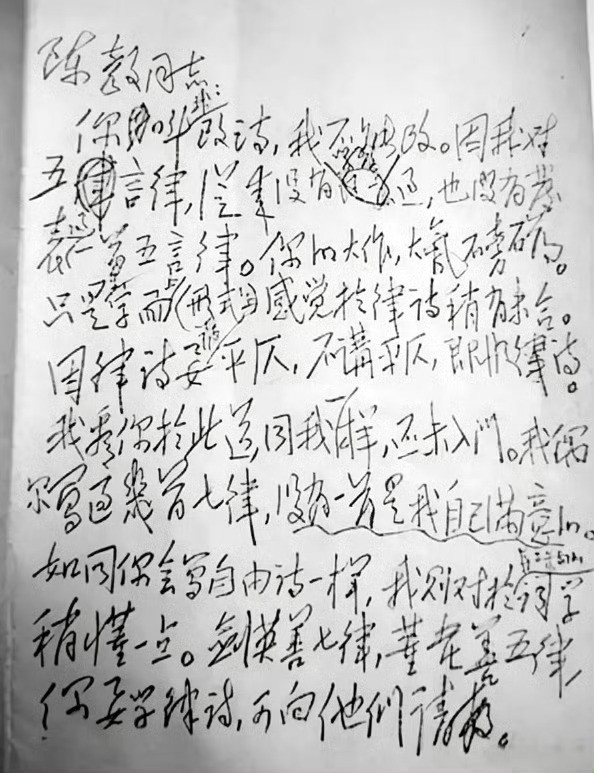 陈毅同志:
你叫我改诗,我不能改。因我对
五言律,從来没有学习过,也没有发
表过一首五言律。你的大作,大氣磅礴。
只是在字面上(形式上)感觉於律诗稍有未合。
因律诗要講平仄,不講平仄,即非律诗。
我看你於此道,同我一样,还未入门。我偶
尔写过几首七律,没有一首是我自己满意的。
如同你会写自由诗一样,我则对於长短句的词学
稍懂一点。剑英善七律,董老善五律,
你要学律诗,可向他们请教。